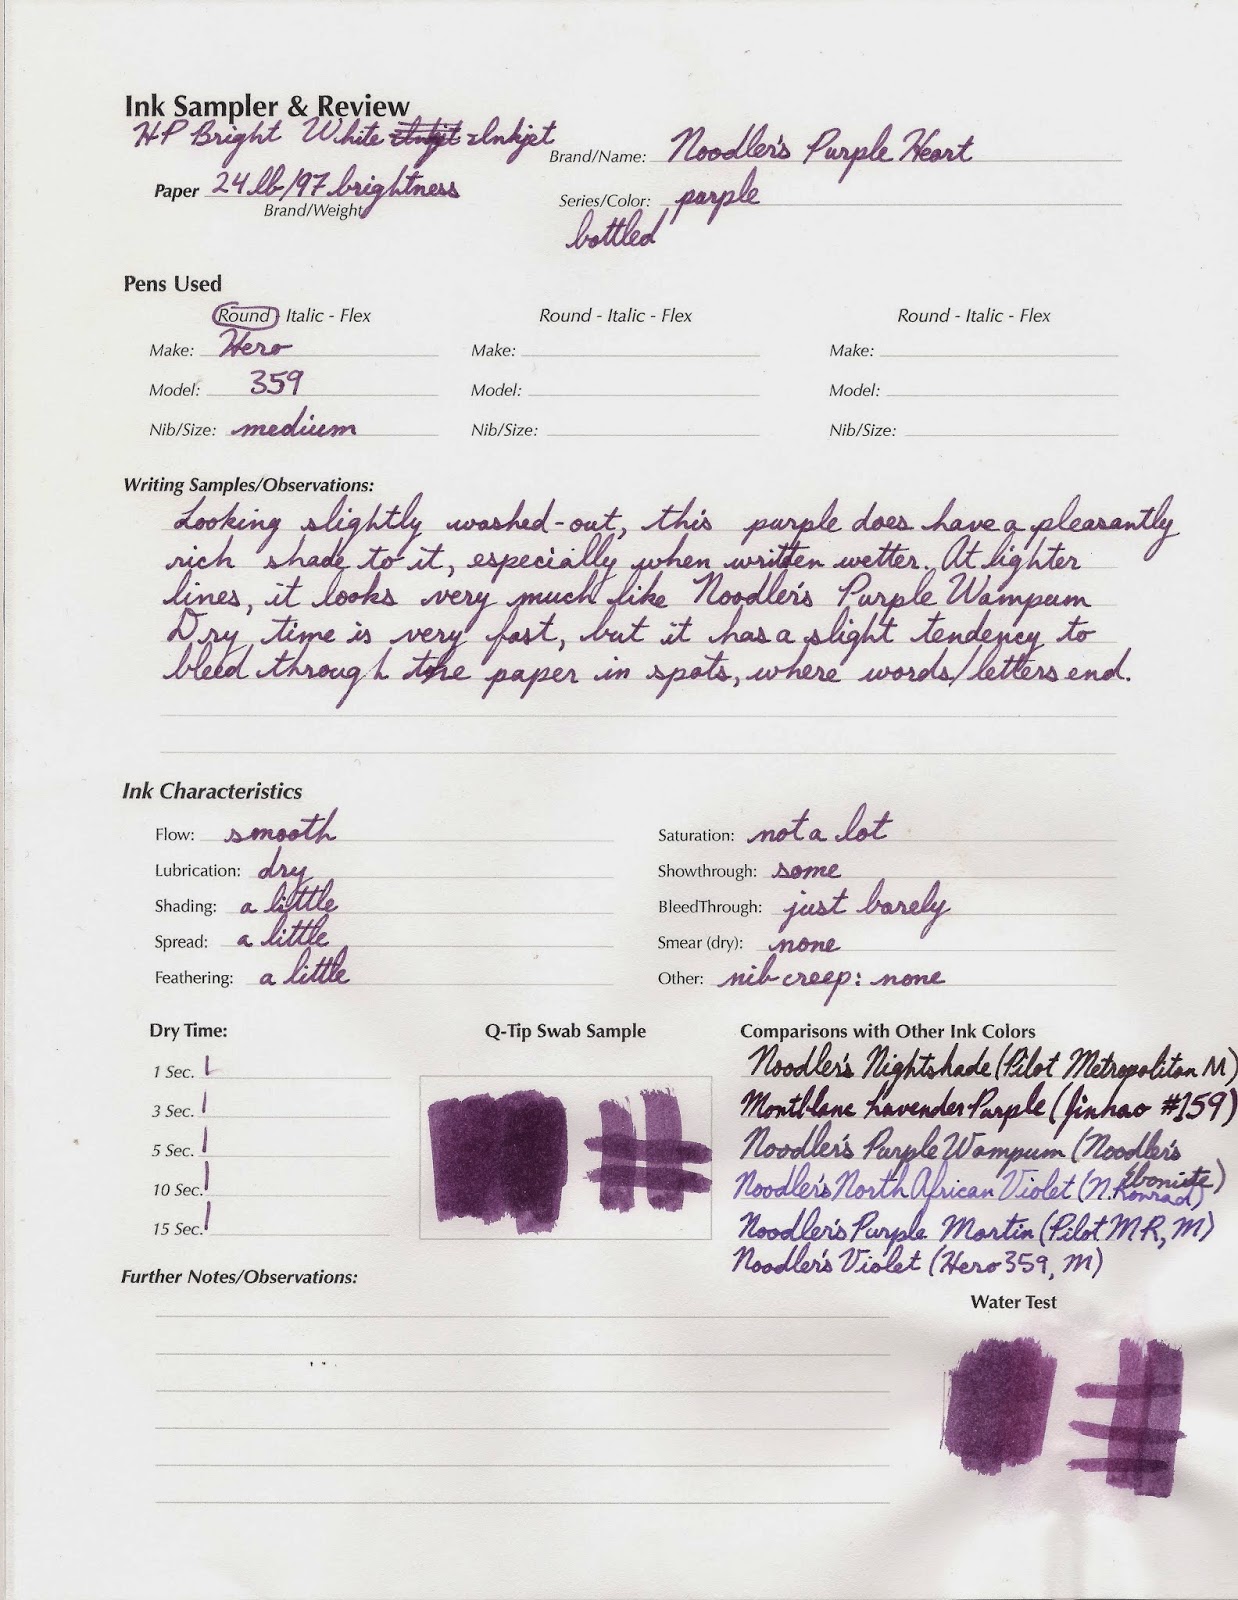 Ink Sampler & Review
HP Bright White Inkjet Inkjet
Brand/Name: Noodler's Purple Heart
Paper 24 lb/97 brightness
Brand/Weight
Series/Color: purple
bottled
Pens Used
Round - Italic - Flex Round - Italic - Flex Round - Italic - Flex
Make: Hero Make: Make:
Model: 359 Model: Model:
Nib/Size: medium Nib/Size: Nib/Size:
Writing Samples/Observations:
Looking slightly washed-out, this purple does have a pleasantly
rich shade to it, especially when written wetter. At lighter
lines, it looks very much like Noodler's Purple Wampum
Dry time is very fast, but it has a slight tendency to
bleed through the paper in spots, where words/letters end.
Ink Characteristics
Flow: smooth Saturation: not a lot
Lubrication: dry Showthrough: some
Shading: a little BleedThrough: just barely
Spread: a little Smear (dry): none
Feathering: a little Other: nib creep: none
Dry Time: Q-Tip Swab Sample Comparisons with Other Ink Colors
1 Sec.
3 Sec.
5 Sec.
10 Sec.
15 Sec.
Noodler's Nightshade (Pilot Metropolitan M)
Montblanc Lavender Purple (Jinhao #159)
Noodler's Purple Wampum (Noodler's
Ebonite)
Noodler's North African Violet (N. Konrad)
Noodler's Purple Martin (Pilot MR, M)
Noodler's Violet (Hero 359, M)
Further Notes/Observations:
Water Test